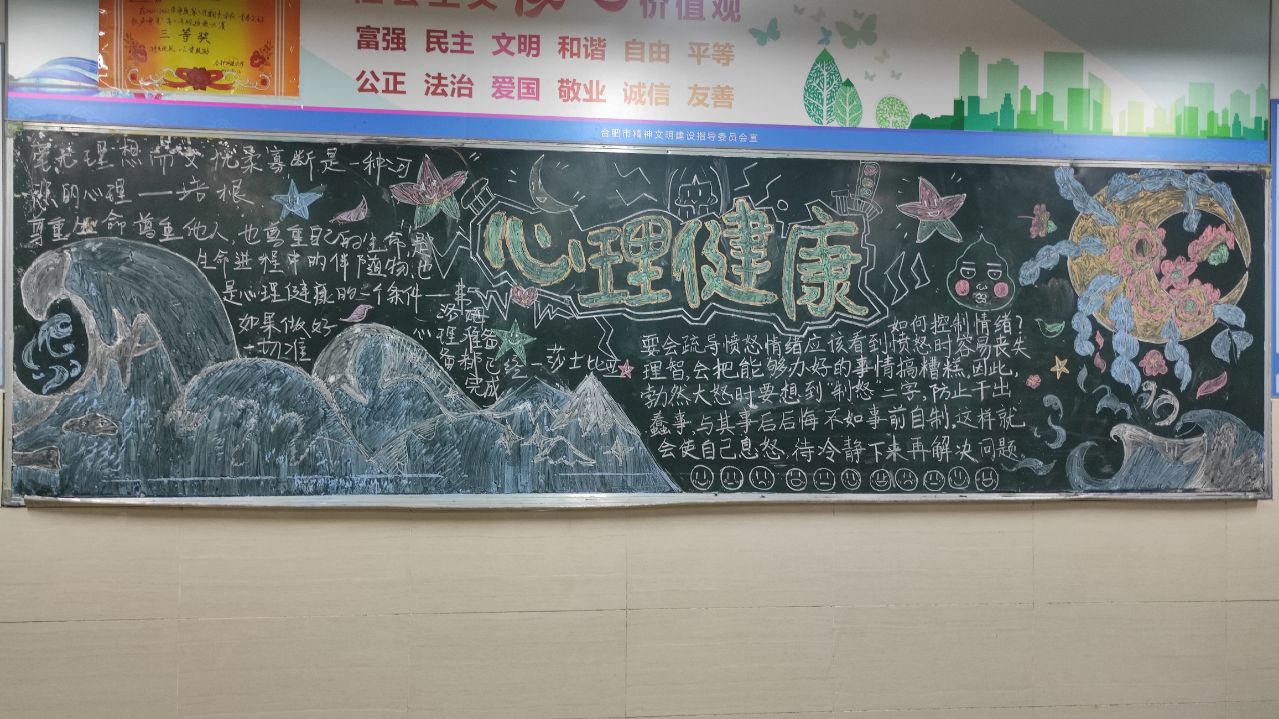 三等奖
社会主义核心价值观
富强 民主 文明 和谐 自由 平等
公正 法治 爱国 敬业 诚信 友善
合肥市精神文明建设指导委员会宣
理想而 优柔寡断是一种习
的心理——培根
尊重生命尊重他人,也尊重自己的生命,是
生命进程中的伴随物,也
是心理健康的一个条件——弗洛姆
如果做好心理准备
一切准备都已经完成
——莎士比亚
心理健康
如何控制情绪?
要会疏导愤怒情绪应该看到愤怒时容易丧失
理智,会把能够办好的事情搞糟糕,因此,
勃然大怒时要想到"制怒"二字,防止干出
蠢事,与其事后后悔不如事前自制,这样就
会使自己息怒,待冷静下来再解决问题。